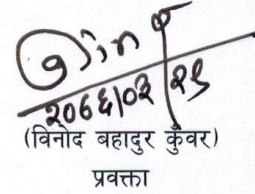 २०६६|०३|२९
(विनोद बहादुर कुँवर)
प्रवक्ता